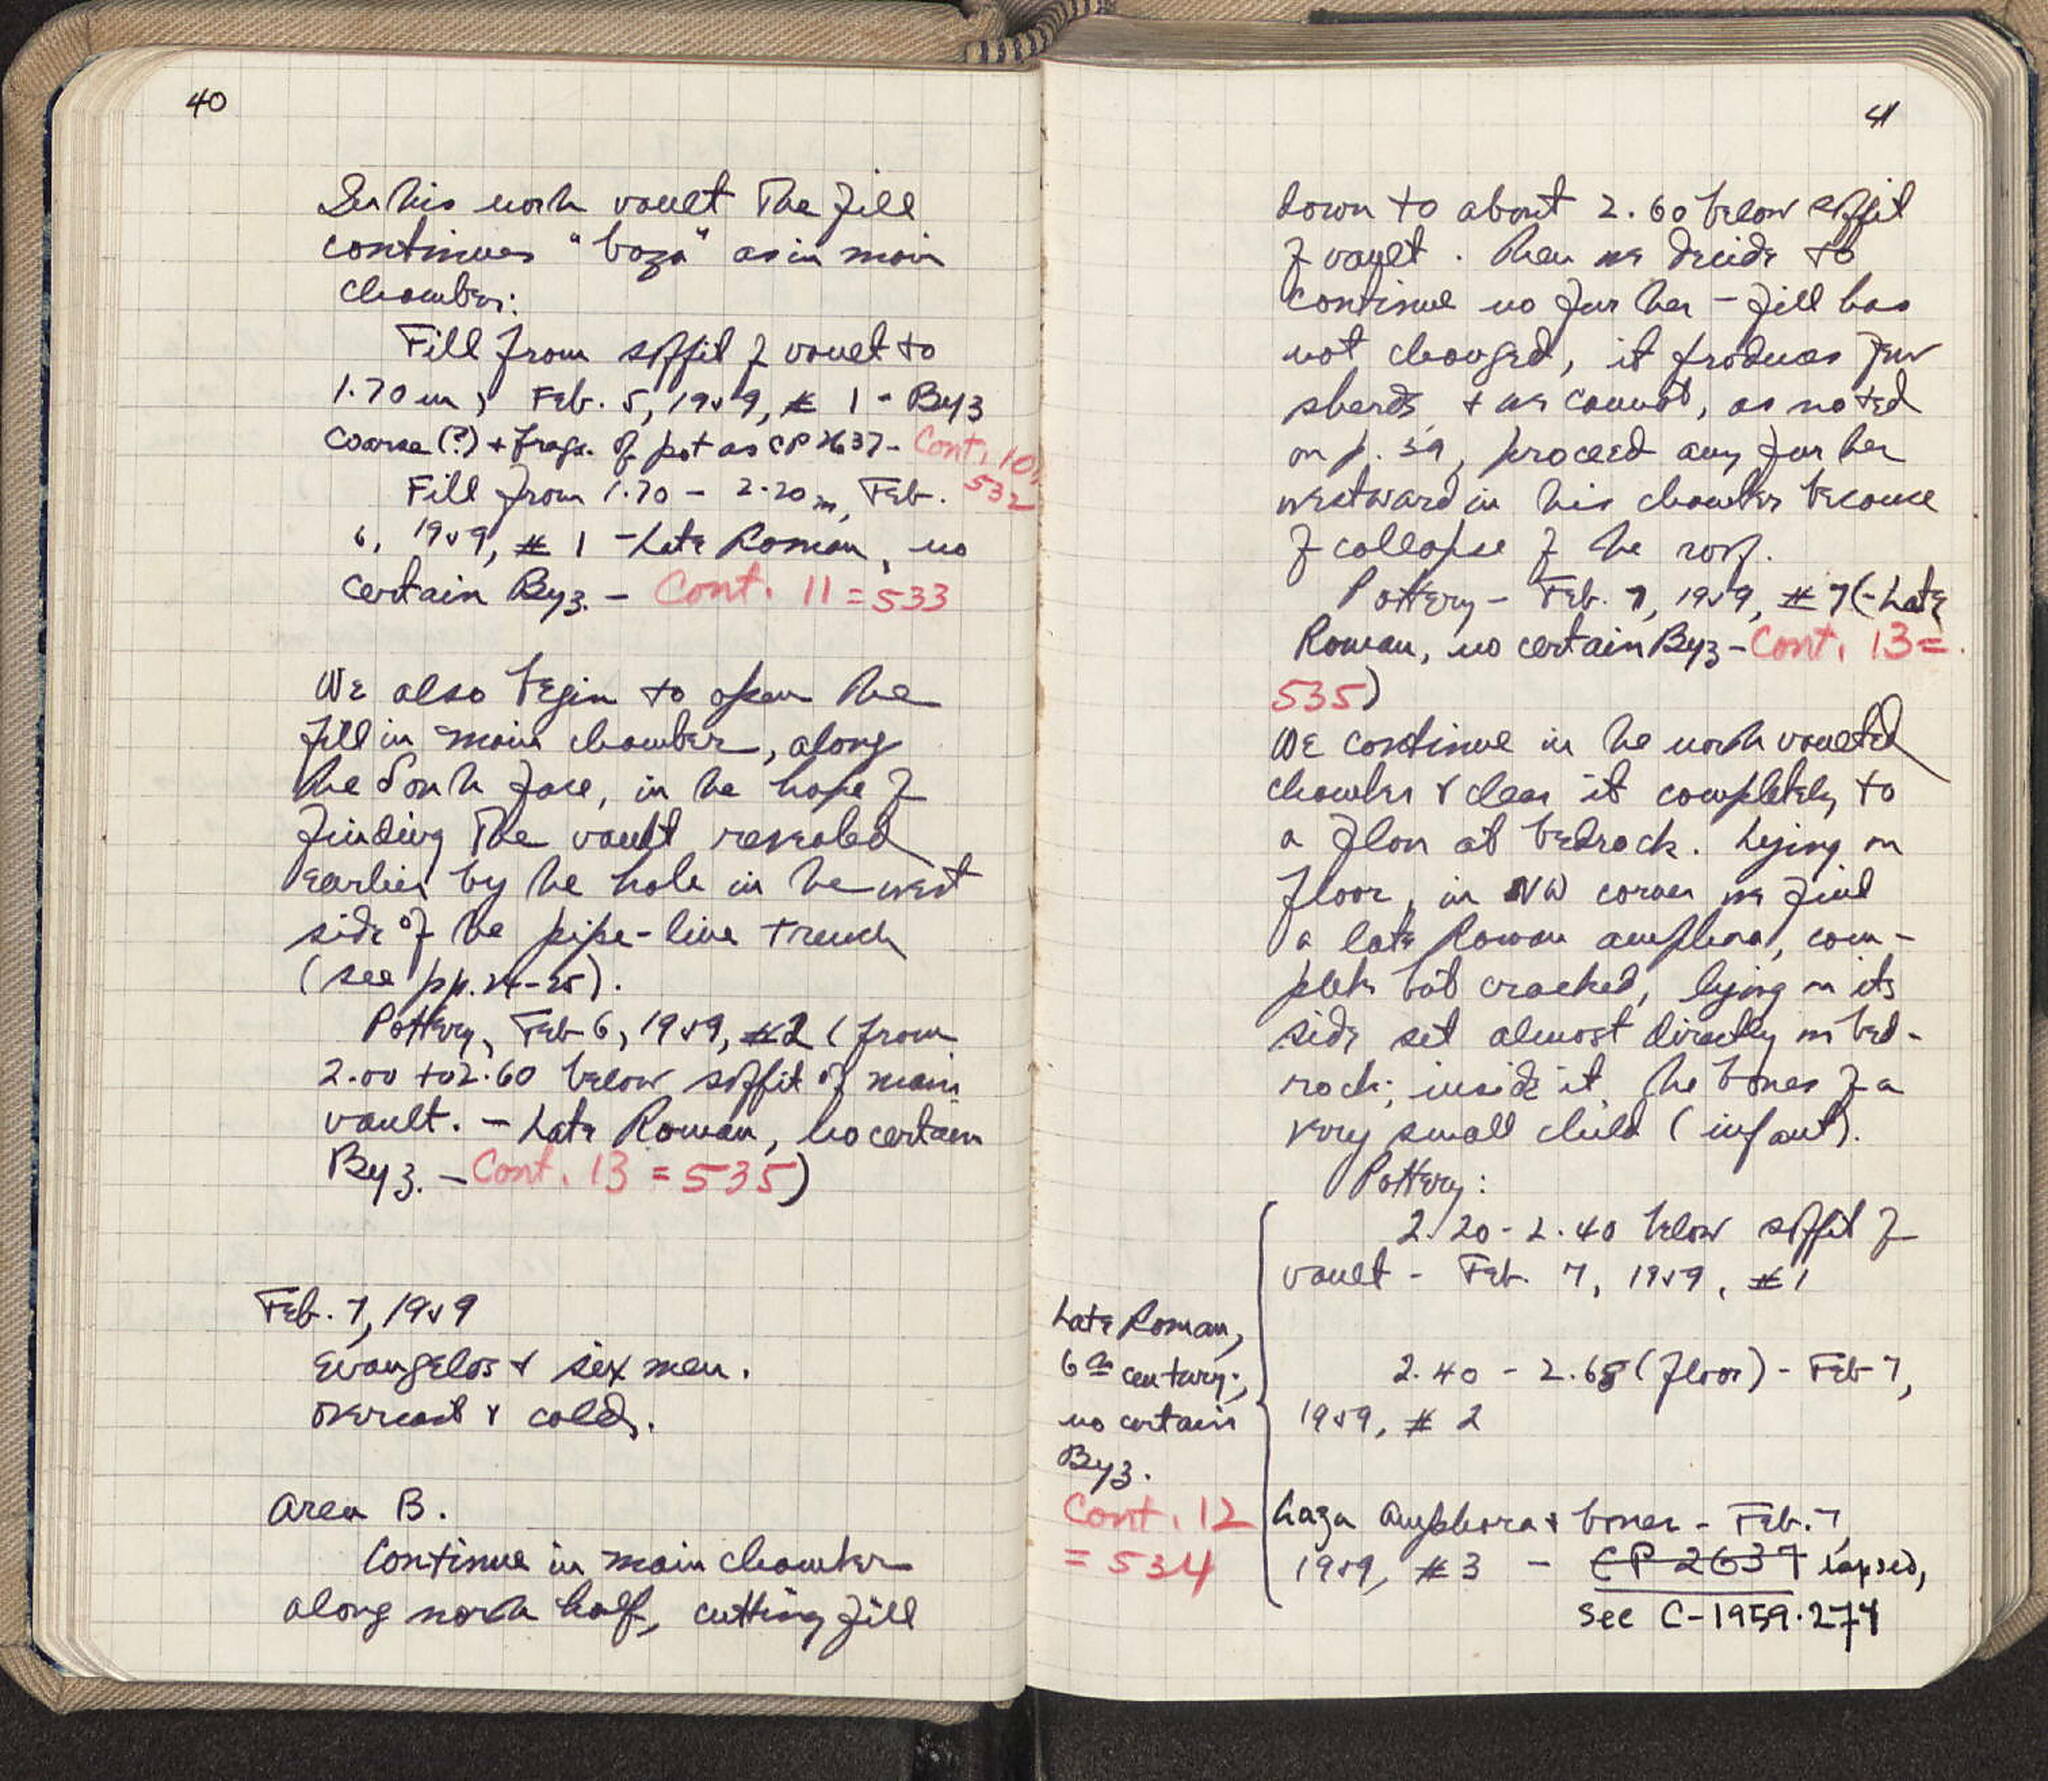 40
In this north vault the fill
continues "boza" as in main
chamber:
Fill from soffit of vault to
1.70 m, Feb. 5, 1959, # 1 - Byz
coarse (?) + frags. of pot as CP 2637 - Cont. 10,
532
Fill from 1.70 - 2.20 m, Feb.
6, 1959, # 1 - Late Roman, no
certain Byz. - Cont. 11 = 533
We also begin to open the
fill in main chamber, along
the South face, in the hope of
finding the vault revealed
earlier by the hole in the west
side of the pipe-line trench
(see pp. 24-25).
Pottery, Feb 6, 1959, #2 (from
2.00 to 2.60 below soffit of main
vault. - Late Roman, no certain
Byz. - Cont. 13 = 535)
Feb. 7, 1959
Evangelos + six men.
Overcast + cold.
Area B.
Continue in main chamber
along north half, cutting fill
41
down to about 2.60 below soffit
of vault. Then we decide to
continue no further - fill has
not changed, it produces few
sherds, + we cannot, as noted
on p. 39, proceed any further
westward in this chamber because
of collapse of the roof.
Pottery - Feb. 7, 1959, # 7 (- Late
Roman, no certain Byz - Cont. 13 =
535)
We continue in the north vaulted
chamber + clear it completely to
a floor at bedrock. Lying on
floor, in NW corner we find
a late Roman amphora, com-
plete but cracked, lying on its
side set almost directly on bed-
rock; inside it, the bones of a
very small child (infant).
Pottery:
2.20 - 2.40 below soffit of
vault - Feb. 7, 1959, #1
2.40 - 2.68 (floor) - Feb 7,
1959, # 2
Late Roman,
6th century,
no certain
Byz.
Cont. 12
= 534
Gaza Amphora + bones - Feb. 7,
1959, # 3 - CP 2637 lapsed,
see C-1959-274